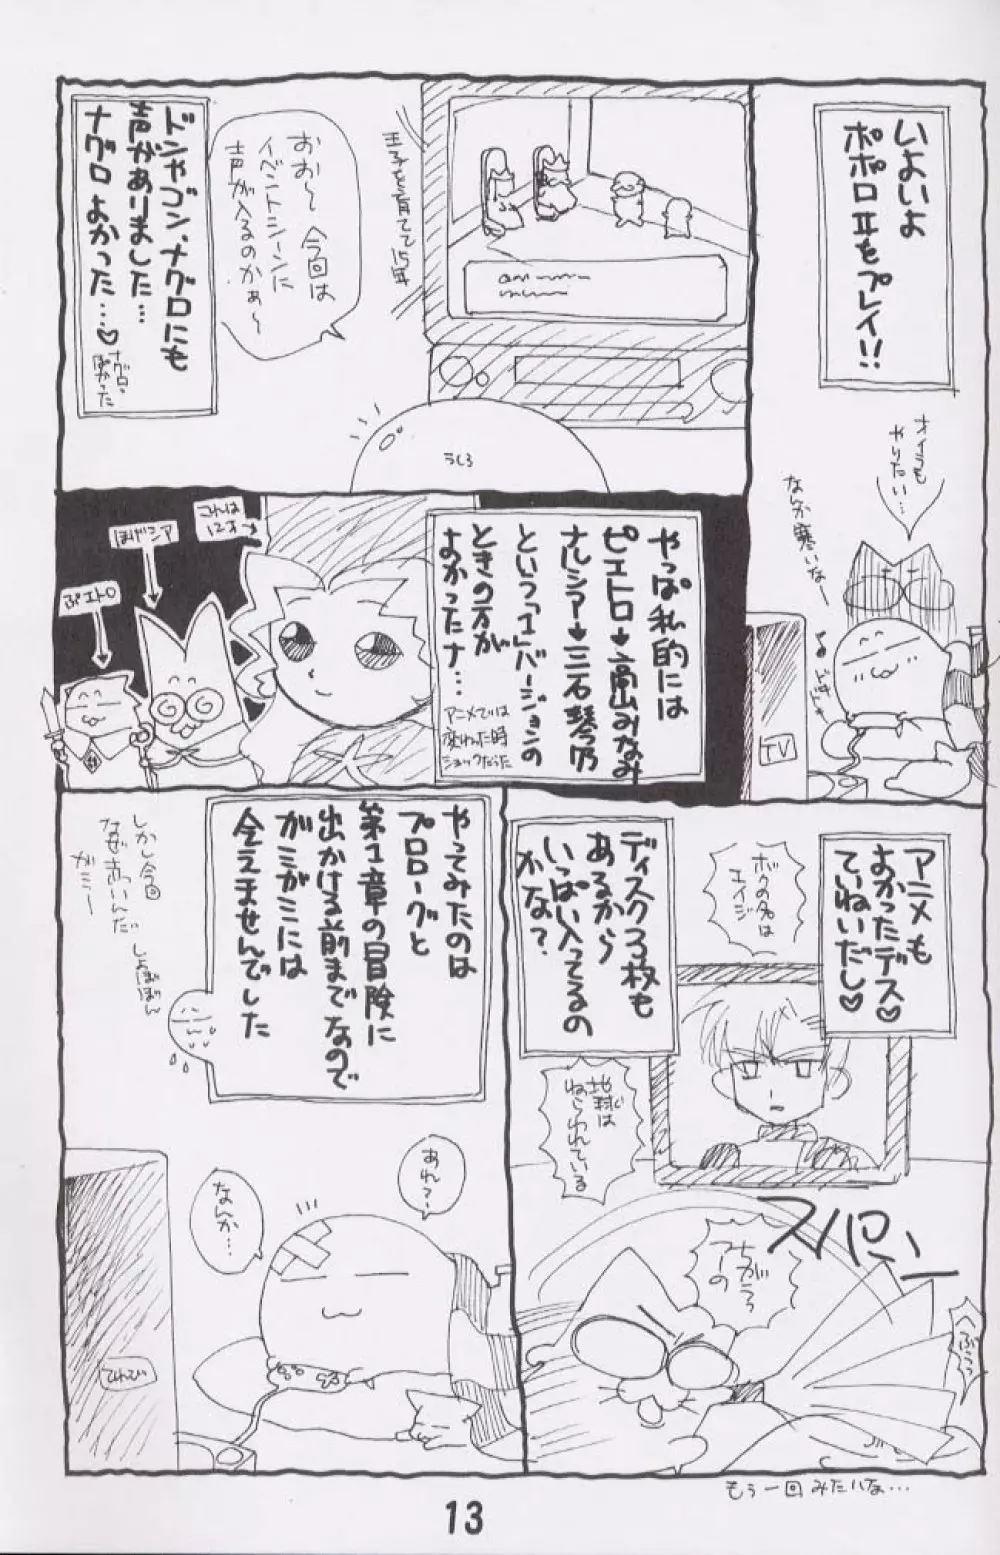 いよいよ
ポポロⅡをプレイ!!
オイラも
やりたい…
なんか寒いなー
TV
王子を育てて15年
おお〜今回は
イベントシーンに
声が入るのかぁ〜
ドンやゴン、ナグロにも
声がありました…
ナグロよかった…♡
ナグロ、
よかった
うしろ
やっぱ私的には
ピエトロ♥高山みなみ
ナルシア♥三石琴乃
という「1」バージョンの
ときの方が
よかったナ…
アニメでいは
変わった時
ショックだった
これは
12才
ほげシア
ぷエトロ
アニメも
よかったデス♡
ていねいだし♡
ボクの名は
エイジ
ディスク3枚も
あるから
いっぱい入ってるの
かな?
地球は
ねらわれている
スパーン
ちがうっ
アーの
へぶぅっ
もう一回みたいな…
やってみたのは
プロローグと
第1章の冒険に
出かける前までなので
ガミガミには
会えませんでした
しかし今回
なぜ赤いんだ
ガミー
しょぼぼん
あれ?
なんか…
てれび
13